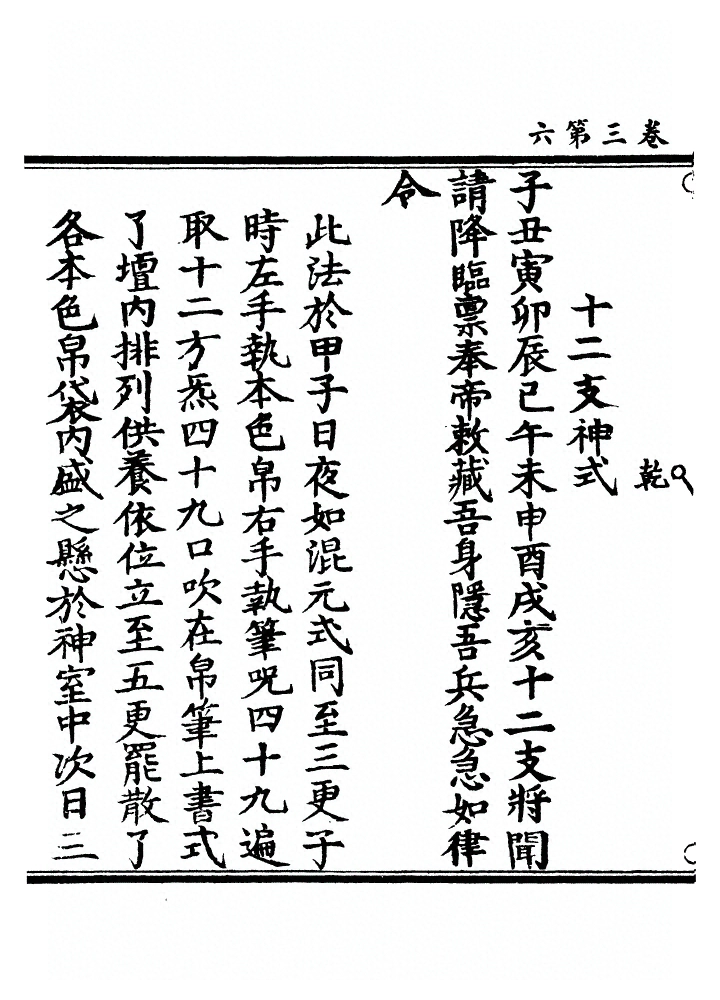 卷三第六
乾
十二支神式
子丑寅卯辰巳午未申酉戌亥十二支將聞
請降臨禀奉帝敕藏吾身隱吾兵急急如律
令
此法於甲子日夜如混元式同至三更子
時左手執本色帛右手執筆呪四十九遍
取十二方炁四十九口吹在帛筆上書式
了壇内排列供養依位立至五更罷散了
各本色帛袋内盛之懸於神室中次日三